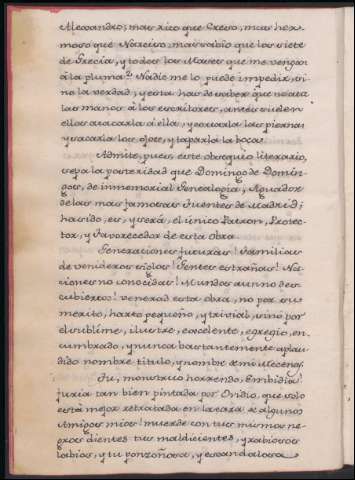 Alexandro; mas rico que Creso, mas her-
moso que Narciso, mas sabio que los siete
de Grecia, y todos los Nares que me vengan
á la pluma? Nadie me lo puede impedir, si-
no la verdad; y esta has de saber que no ata
las manos á los escritores, antes suelen
ellos atacarla á ella, y cortarla las piernas
y sacarla los ojos, y taparla la boca.
Admite, pues, este obsequio literario,
sepa la posteridad que Domingo de Domin-
gos, de inmemorial Genealogia, Aguador
de las mas famosas Fuentes de Madrid;
ha sido, es, y será, el único Patron, Protec-
tor, y Favorecedor de esta Obra
Generaciones futuras! Familias
de venideros siglos! Gentes estrañas! Na-
ciones no conocidas! Mundos aun no des-
cubiertos! venerad esta obra, no por su
merito, harto pequeño, y trivial, sino por
el sublime, ilustre, excelente, egregio, en-
cumbrado, y nunca bastantemente aplau-
dido nombre, titulo, y nombre de mi Mecenas.
Tu, monstruo horrendo, Embidia
furia tan bien pintada por Ovidio, que solo
está mejor retratada en la cara de algunos
Amigos mios! muerde con tus mismos ne-
gros dientes tus maldicientes, y rabiosos
labios, y tu ponzoñosa, y escandalosa